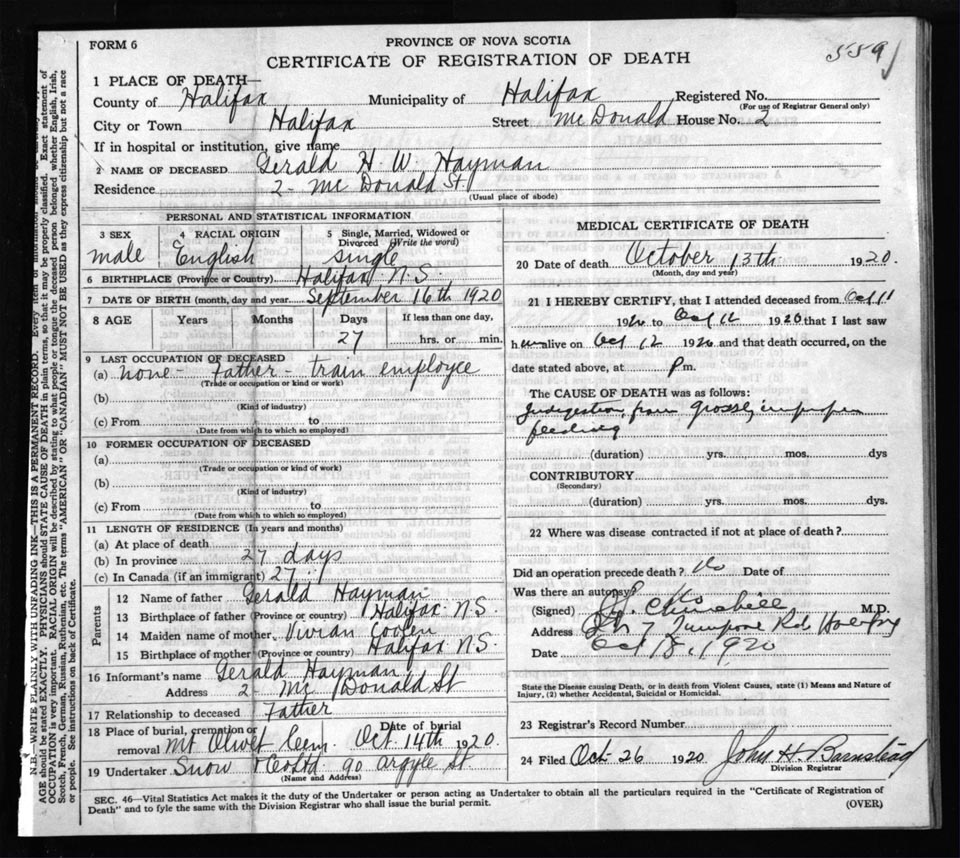 FORM 6
PROVINCE OF NOVA SCOTIA
559
CERTIFICATE OF REGISTRATION OF DEATH
1 PLACE OF DEATH—
County of Halifax Municipality of Halifax Registered No.
(For use of Registrar General only)
City or Town Halifax Street McDonald House No. 2
If in hospital or institution, give name
2 NAME OF DECEASED Gerald H. W. Hayman
Residence 2 - McDonald St.
(Usual place of abode)
PERSONAL AND STATISTICAL INFORMATION
3 SEX 4 RACIAL ORIGIN 5 Single, Married, Widowed or Divorced (Write the word)
male English single
6 BIRTHPLACE (Province or Country) Halifax N.S.
7 DATE OF BIRTH (month, day and year September 16th 1920
8 AGE Years Months Days If less than one day,
27 hrs. or min.
9 LAST OCCUPATION OF DECEASED
(a) none - Father - train employee
(Trade or occupation or kind of work)
(b)
(Kind of industry)
(c) From to
(Date from which to which so employed)
10 FORMER OCCUPATION OF DECEASED
(a)
(Trade or occupation or kind of work)
(b)
(Kind of industry)
(c) From to
(Date from which to which so employed)
11 LENGTH OF RESIDENCE (In years and months)
(a) At place of death
(b) In province 27 days
(c) In Canada (if an immigrant) 27
Parents
12 Name of father Gerald Hayman
13 Birthplace of father (Province or country) Halifax N.S.
14 Maiden name of mother Vivian Coolen
15 Birthplace of mother (Province or country) Halifax N.S.
16 Informant's name Gerald Hayman
Address 2 - McDonald St
17 Relationship to deceased Father
18 Place of burial, cremation or removal Mt Olivet Cem. Date of burial Oct. 14th 1920.
19 Undertaker Snow & Co Ltd. 90 Argyle St.
(Name and Address)
MEDICAL CERTIFICATE OF DEATH
20 Date of death October 13th 1920.
(Month, day and year)
21 I HEREBY CERTIFY, that I attended deceased from Oct 11
1920 to Oct 12 1920 that I last saw
him alive on Oct 12 1920 and that death occurred, on the
date stated above, at P m.
The CAUSE OF DEATH was as follows:
Indigestion from grossly improper
feeding
(duration) yrs. mos. dys
CONTRIBUTORY
(Secondary)
(duration) yrs. mos. dys.
22 Where was disease contracted if not at place of death?
Did an operation precede death? No Date of
Was there an autopsy? No
(Signed) Churchill M.D.
Address
Date Oct 18, 1920
State the Disease causing Death, or in death from Violent Causes, state (1) Means and Nature of
Injury, (2) whether Accidental, Suicidal or Homicidal.
23 Registrar's Record Number
24 Filed Oct 26 1920 John H. Barnstead
Division Registrar
SEC. 46—Vital Statistics Act makes it the duty of the Undertaker or person acting as Undertaker to obtain all the particulars required in the "Certificate of Registration of
Death" and to fyle the same with the Division Registrar who shall issue the burial permit.
(OVER)
N.B.—WRITE PLAINLY WITH UNFADING INK—THIS IS A PERMANENT RECORD. Every item of information
AGE should be stated EXACTLY. PHYSICIANS should STATE CAUSE OF DEATH in plain terms, so that it may be properly classified. Exact statement of
OCCUPATION is very important. RACIAL ORIGIN will be described by stating to what people or tongue the deceased person belonged, whether English, Irish,
Scotch, French, German, Russian, Ruthenian, etc. The terms "AMERICAN" OR "CANADIAN" MUST NOT BE USED as they express citizenship but not a race
or people. See instructions on back of Certificate.